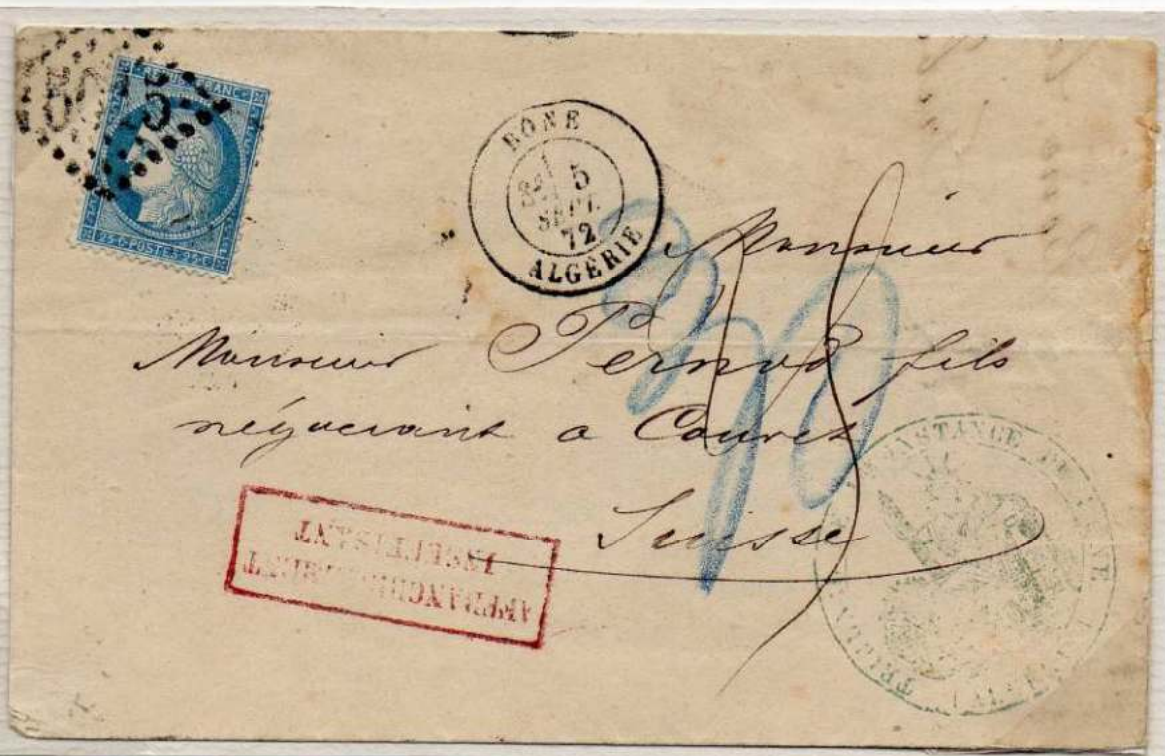 5015
REPUB. FRANC.
25 c. POSTES 25 c.
BÔNE
5
SEPT.
72
ALGÉRIE
Monsieur
Monsieur Pernod fils
négociant a Couvet
Suisse
30
AFFRANCHISSEMENT
INSUFFISANT